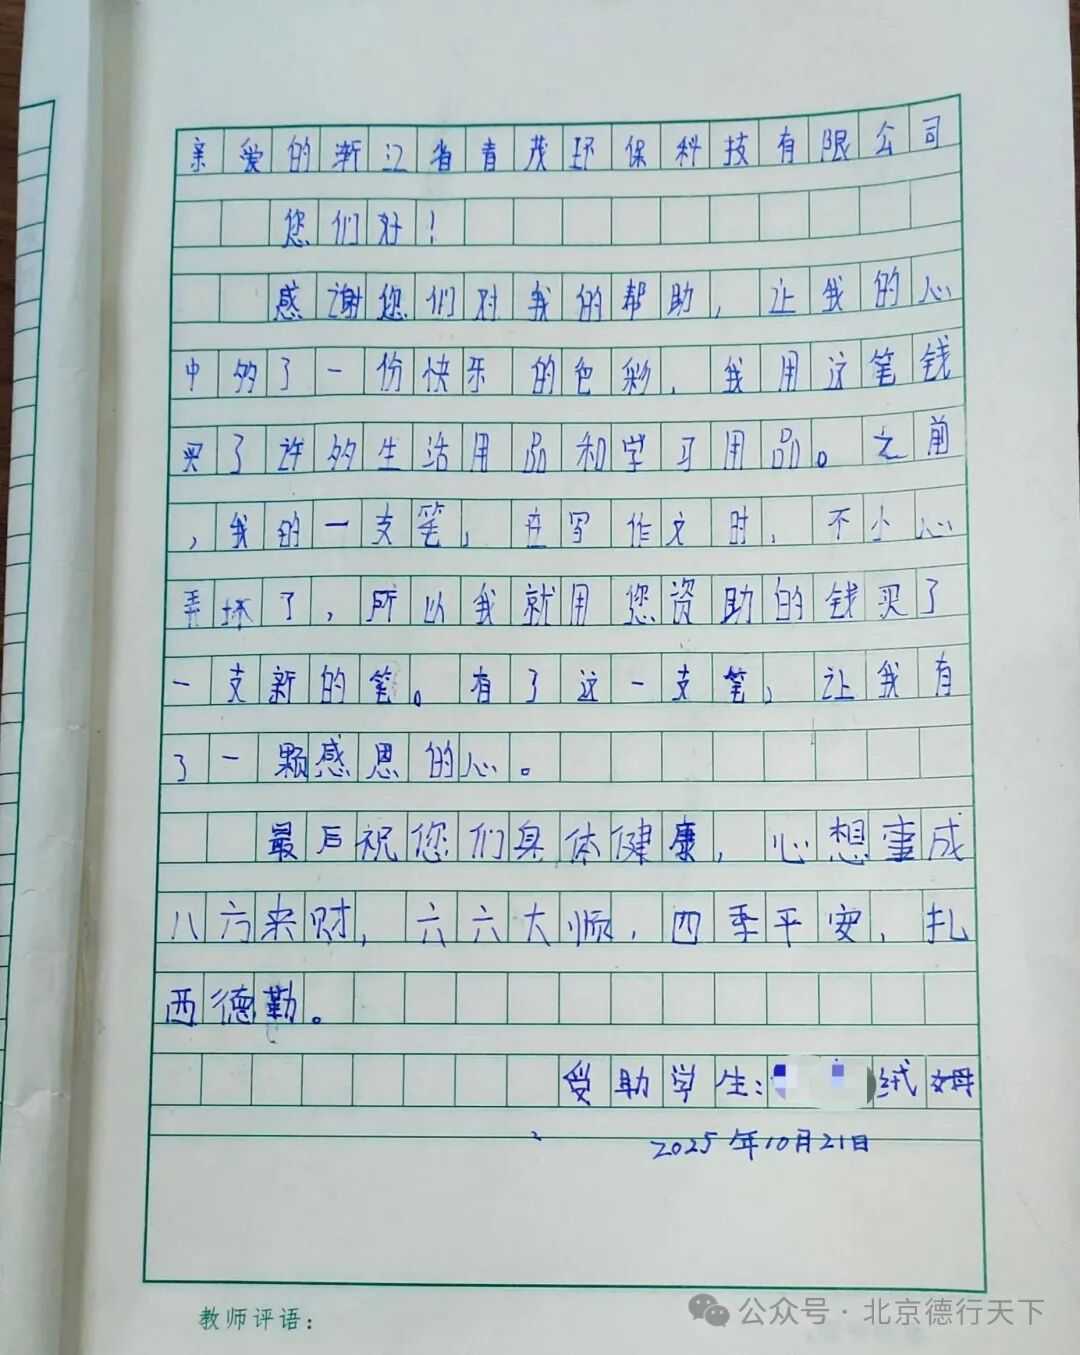 亲爱的浙江省青茂环保科技有限公司
您们好！
感谢您们对我的帮助，让我的心
中多了一份快乐的色彩，我用这笔钱
买了许多生活用品和学习用品。之前
，我的一支笔，在写作文时，不小心
弄坏了，所以我就用您资助的钱买了
一支新的笔。有了这一支笔，让我有
了一颗感恩的心。
最后祝您们身体健康，心想事成
八方来财，六六大顺，四季平安，扎
西德勤。
受助学生：绒姆
2025年10月21日
教师评语：
公众号·北京德行天下